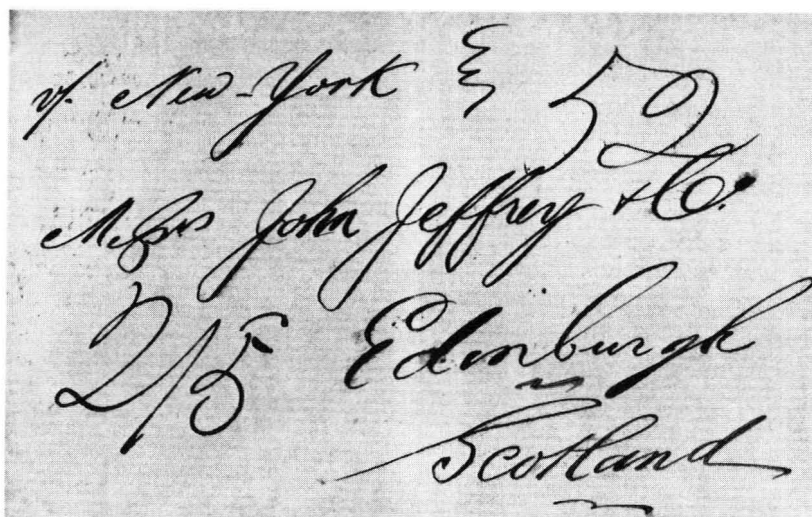 v/. New-York 52
Messrs John Jeffrey & Co.
2/5 Edinburgh
Scotland